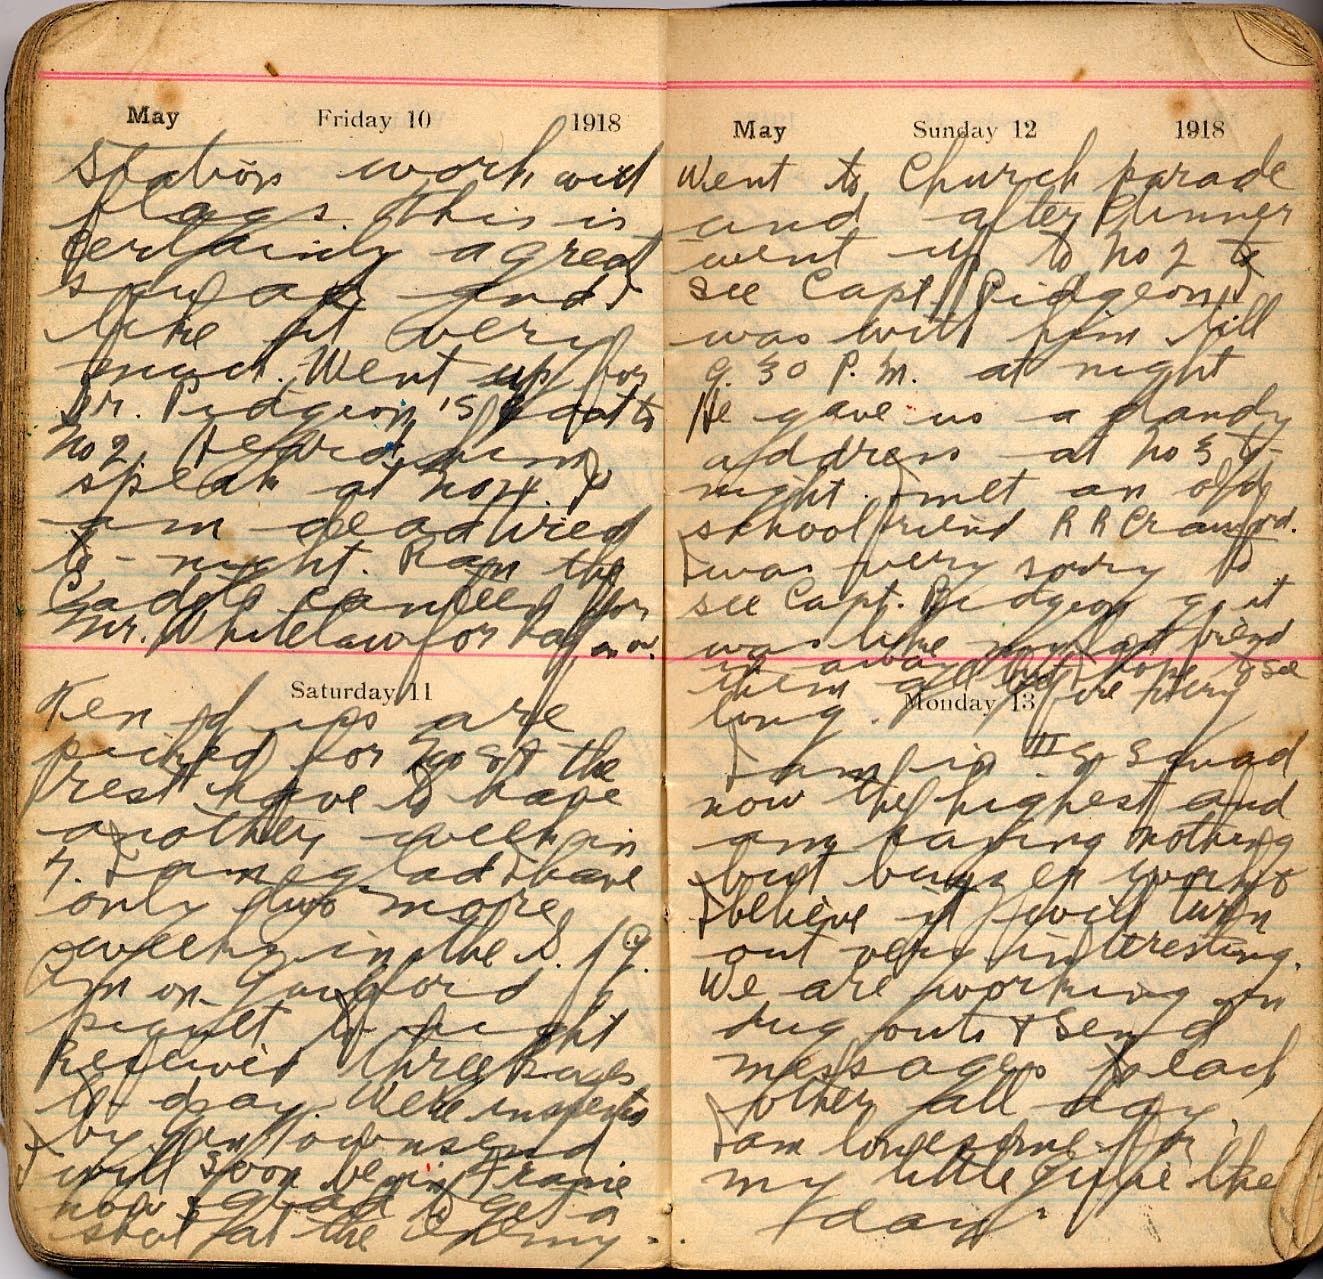 May Friday 10 1918
Station work with
flags. This is
certainly a great
squad and I
like it very
much. Went up for
Dr. Pidgeon's to
No 2. Heard him
speak at No 4. I
am dead tired
to-night. Ran the
Cadets canteen for
Mr. Whitelaw for half an our.
Saturday, 11
Ten of us are
picked for the
rest have to have
another week in
4. I am glad I have
only two more
weeks in the S. of
Im on
to night
Received three
to-day. Were inspected
by Gen Townsend
I will soon be in France
now & glad to get a
shot at the Enemy.
May Sunday 12 1918
Went to Church parade
and after dinner
went up to No 2 to
see Capt. Pidgeon I
was with him till
9.30 P.M. at night
He gave us a dandy
address at No 3 to-
night. I met an old
school friend R R Crawford.
I was very sorry to
see Capt. Pidgeon go it
was like my last friend
away but I hope to see
him before very
long.
Monday 13
I am in Squad
now the highest and
am having nothing
but buzzer work &
I believe it will turn
out very interesting.
We are working in
dug outs & send
messages to each
other all day.
I am lonesome for
my little the
day.